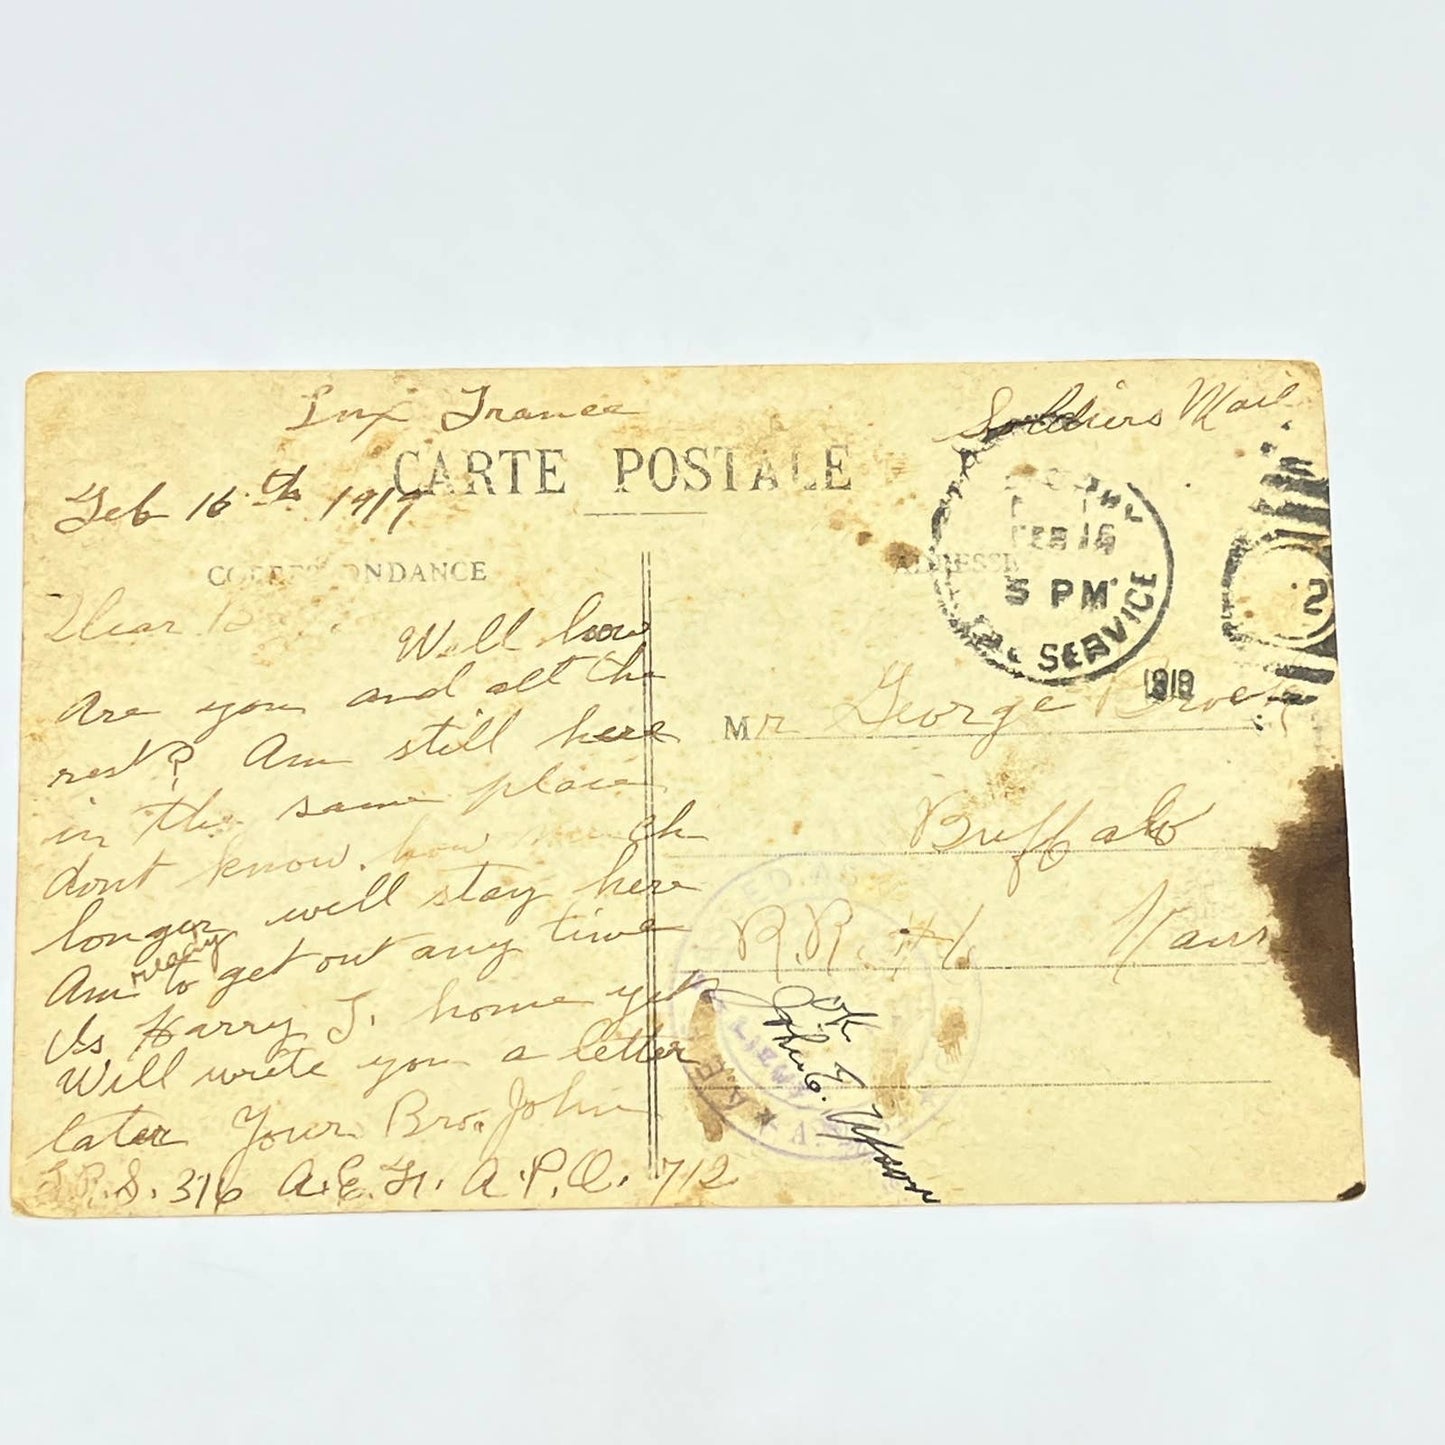 France
Soldiers Mail
CARTE POSTALE
Feb 16th 1919
CORRESPONDANCE
ADRESSE
FEB 16
5 PM
SERVICE
2
1919
Dear
Well how
are you and all the
rest? Am still here
in the same place
dont know how much
longer will stay here
Am ready to get out any time
Is Harry J. home yet
Will write you a letter
later Your Bro. John
S. 316 A.E.F. A.P.O. 712
Mr George
Buffalo
R.R. #1 Kans
OK
John
A.E.F.